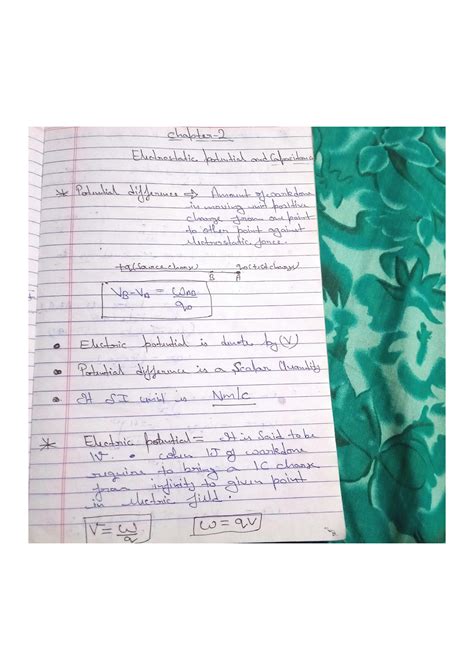 Chapter-2
Electrostatic potential and Capacitance
* Potential difference ⇒ Amount of workdone
in moving unit positive
charge from one point
to other point against
electrostatic force.
+q (Source charge) q₀ (test charge)
B A
V_B - V_A = W_AB / q₀
• Electric potential is denote by (V)
• Potential difference is a Scalar Quantity
• It SI unit is Nm/C
* Electric potential = It is said to be
1V • when 1J of workdone
require to bring a 1C charge
from infinity to given point
in electric field.
V = W/q W = qV